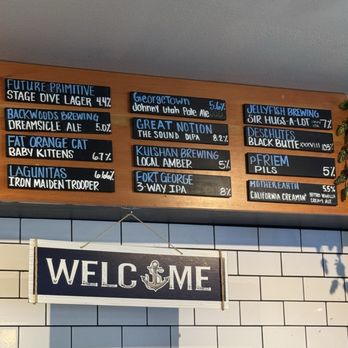 FUTURE PRIMITIVE
STAGE DIVE LAGER 4.4%
BACKWOODS BREWING
DREAMSICLE ALE 5.0%
FAT ORANGE CAT
BABY KITTENS 6.7%
LAGUNITAS 6.66%
IRON MAIDEN TROOPER
GEORGETOWN 5.6%
Johnny Utah Pale Ale
GREAT NOTION
THE SOUND DIPA 8.2%
KULSHAN BREWING
LOCAL AMBER 5%
FORT GEORGE
3-WAY IPA 8%
JELLYFISH BREWING
SIR HUGS-A-LOT 7%
DESCHUTES
BLACK BUTTE XXXVIII
PFRIEM
PILS 5%
MOTHER EARTH 5.5%
CALIFORNIA CREAMIN' NITRO VANILLA
CREAM ALE
WELCOME